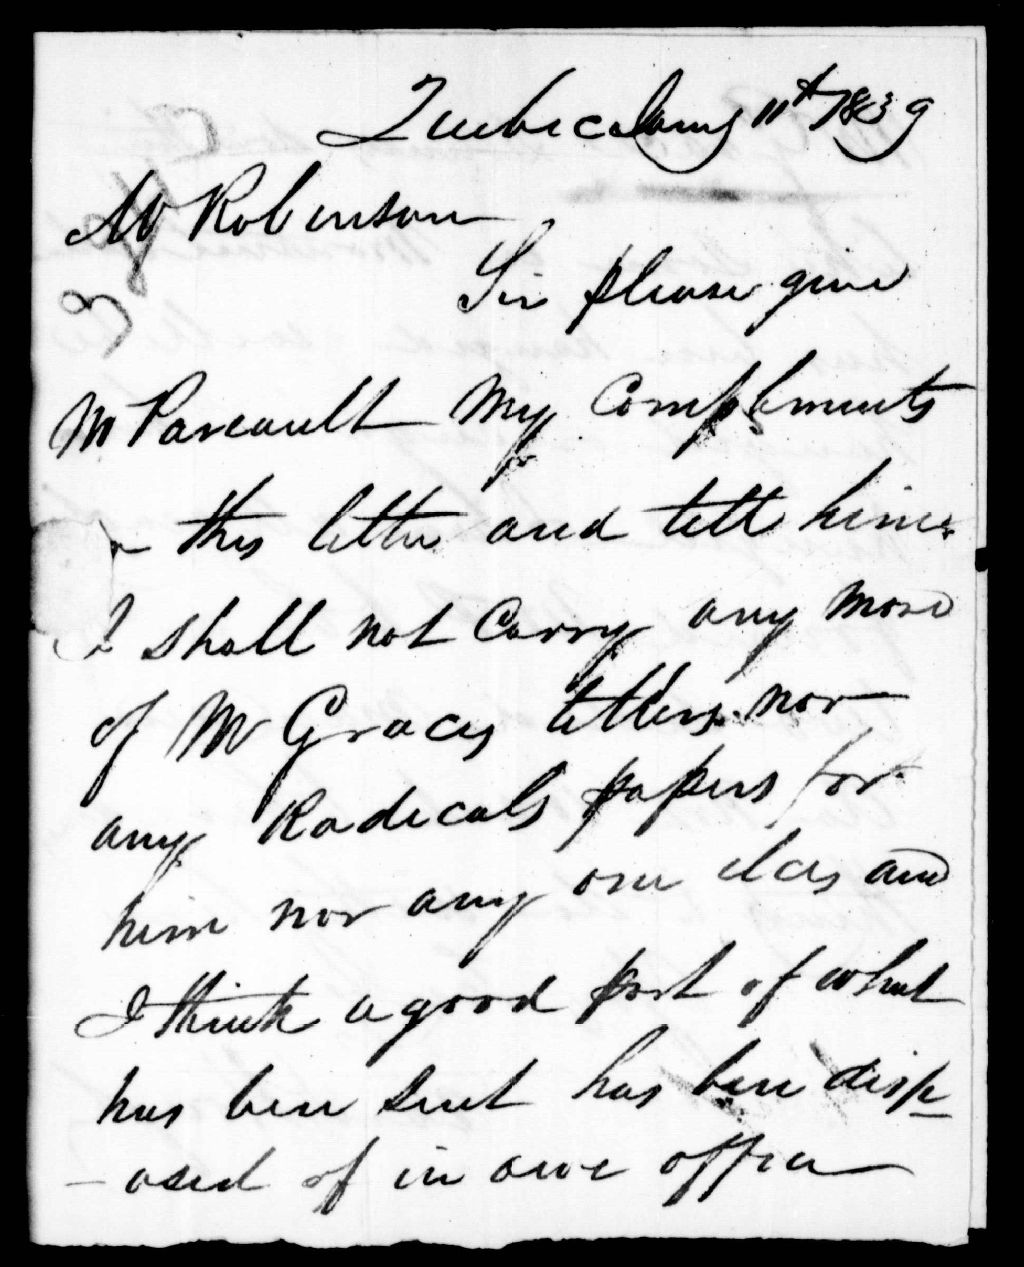 Quebec Jany 11th 1839
Mr Robinson
Sir please give
Mr Pareault My Compliments
this letter and tell him
I shall not Carry any more
of Mr Graceys letters nor
any Radicals papers for
him nor any one elces and
I think a good part of what
has ben sent has ben disp
- osed of in owe office